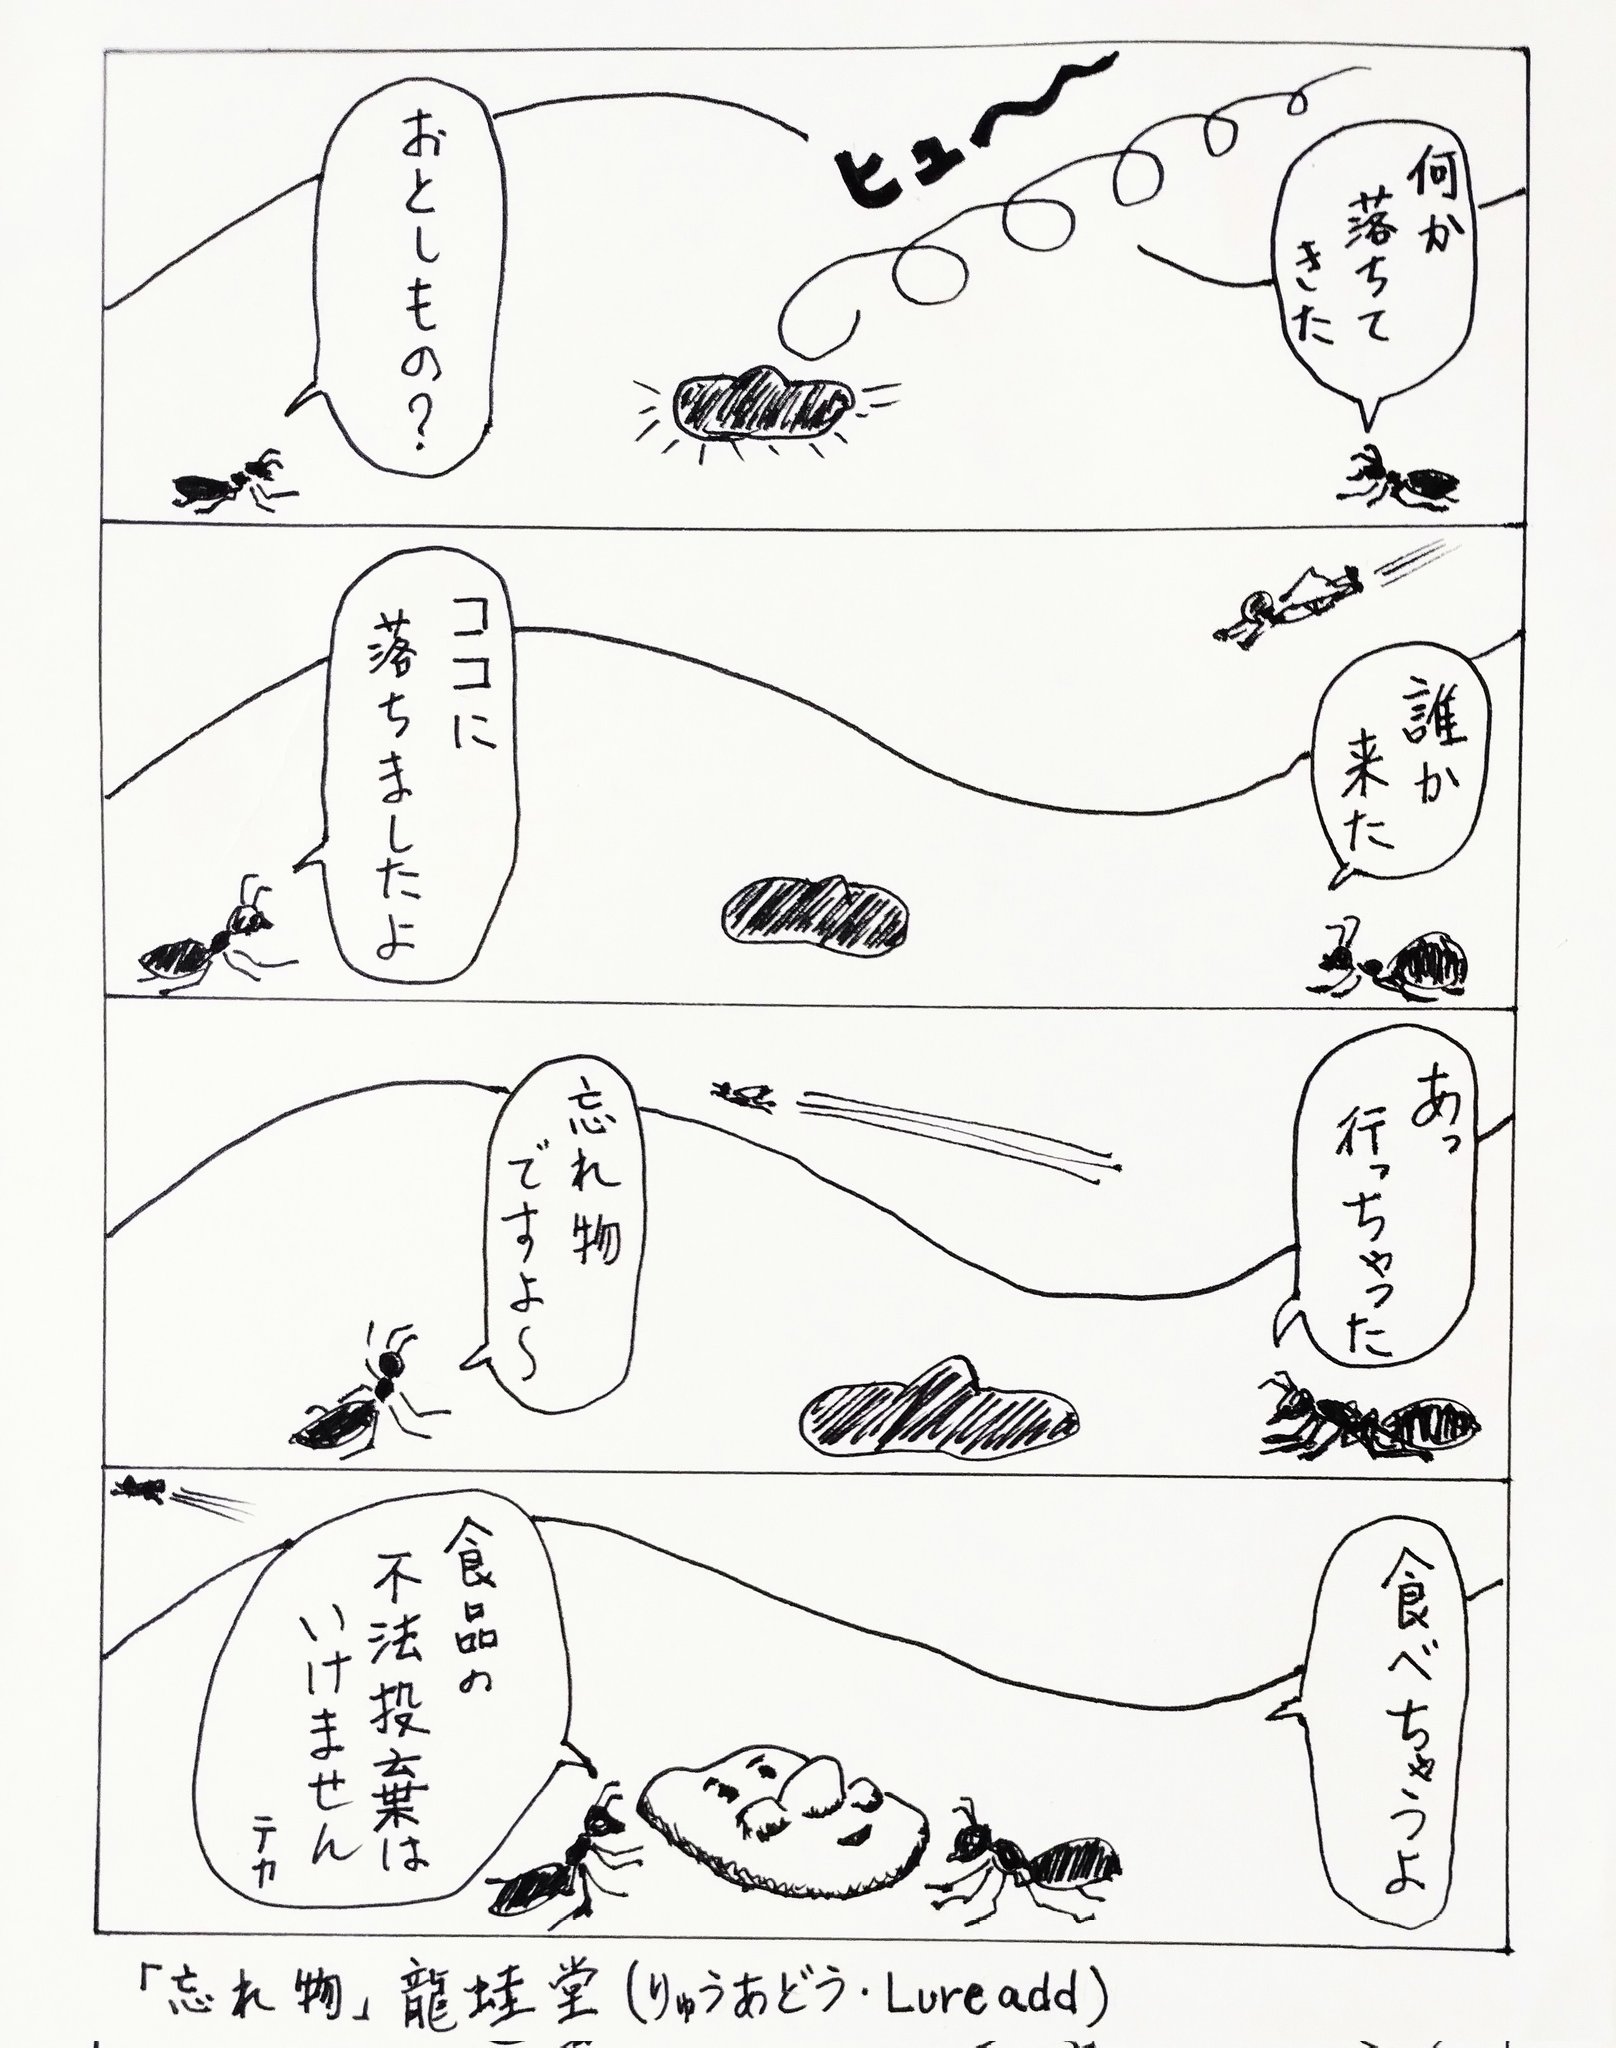 何か
落ちて
きた
ヒュ〜
おとしもの？
誰か
来た
ココに
落ちましたよ
あっ
行っちゃった
忘れ物
ですよ〜
食べちゃうよ
食品の
不法投棄は
いけません
テカ
「忘れ物」龍蛙堂(りゅうあどう・Lureadd)